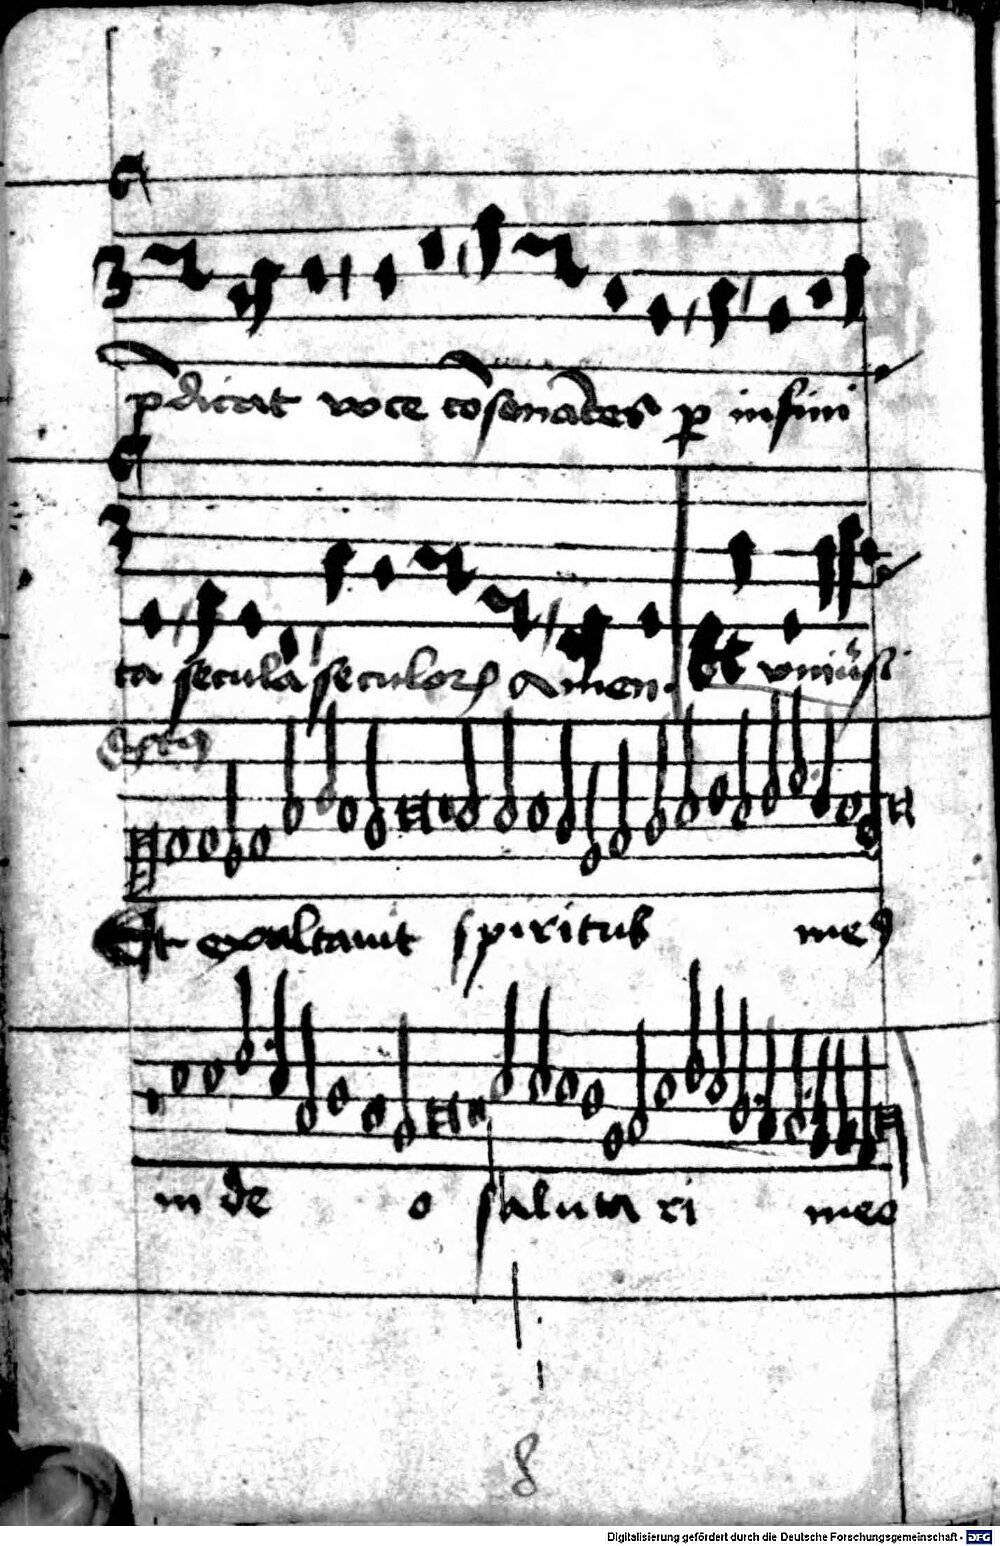 p̄dicat voce cōsonātes ꝑ infini
ta secula seculorꝫ Amen. Et vniūsi
Et exultauit spiritus meꝰ
in de o saluta ri meo
8
Digitalisierung gefördert durch die Deutsche Forschungsgemeinschaft - DFG